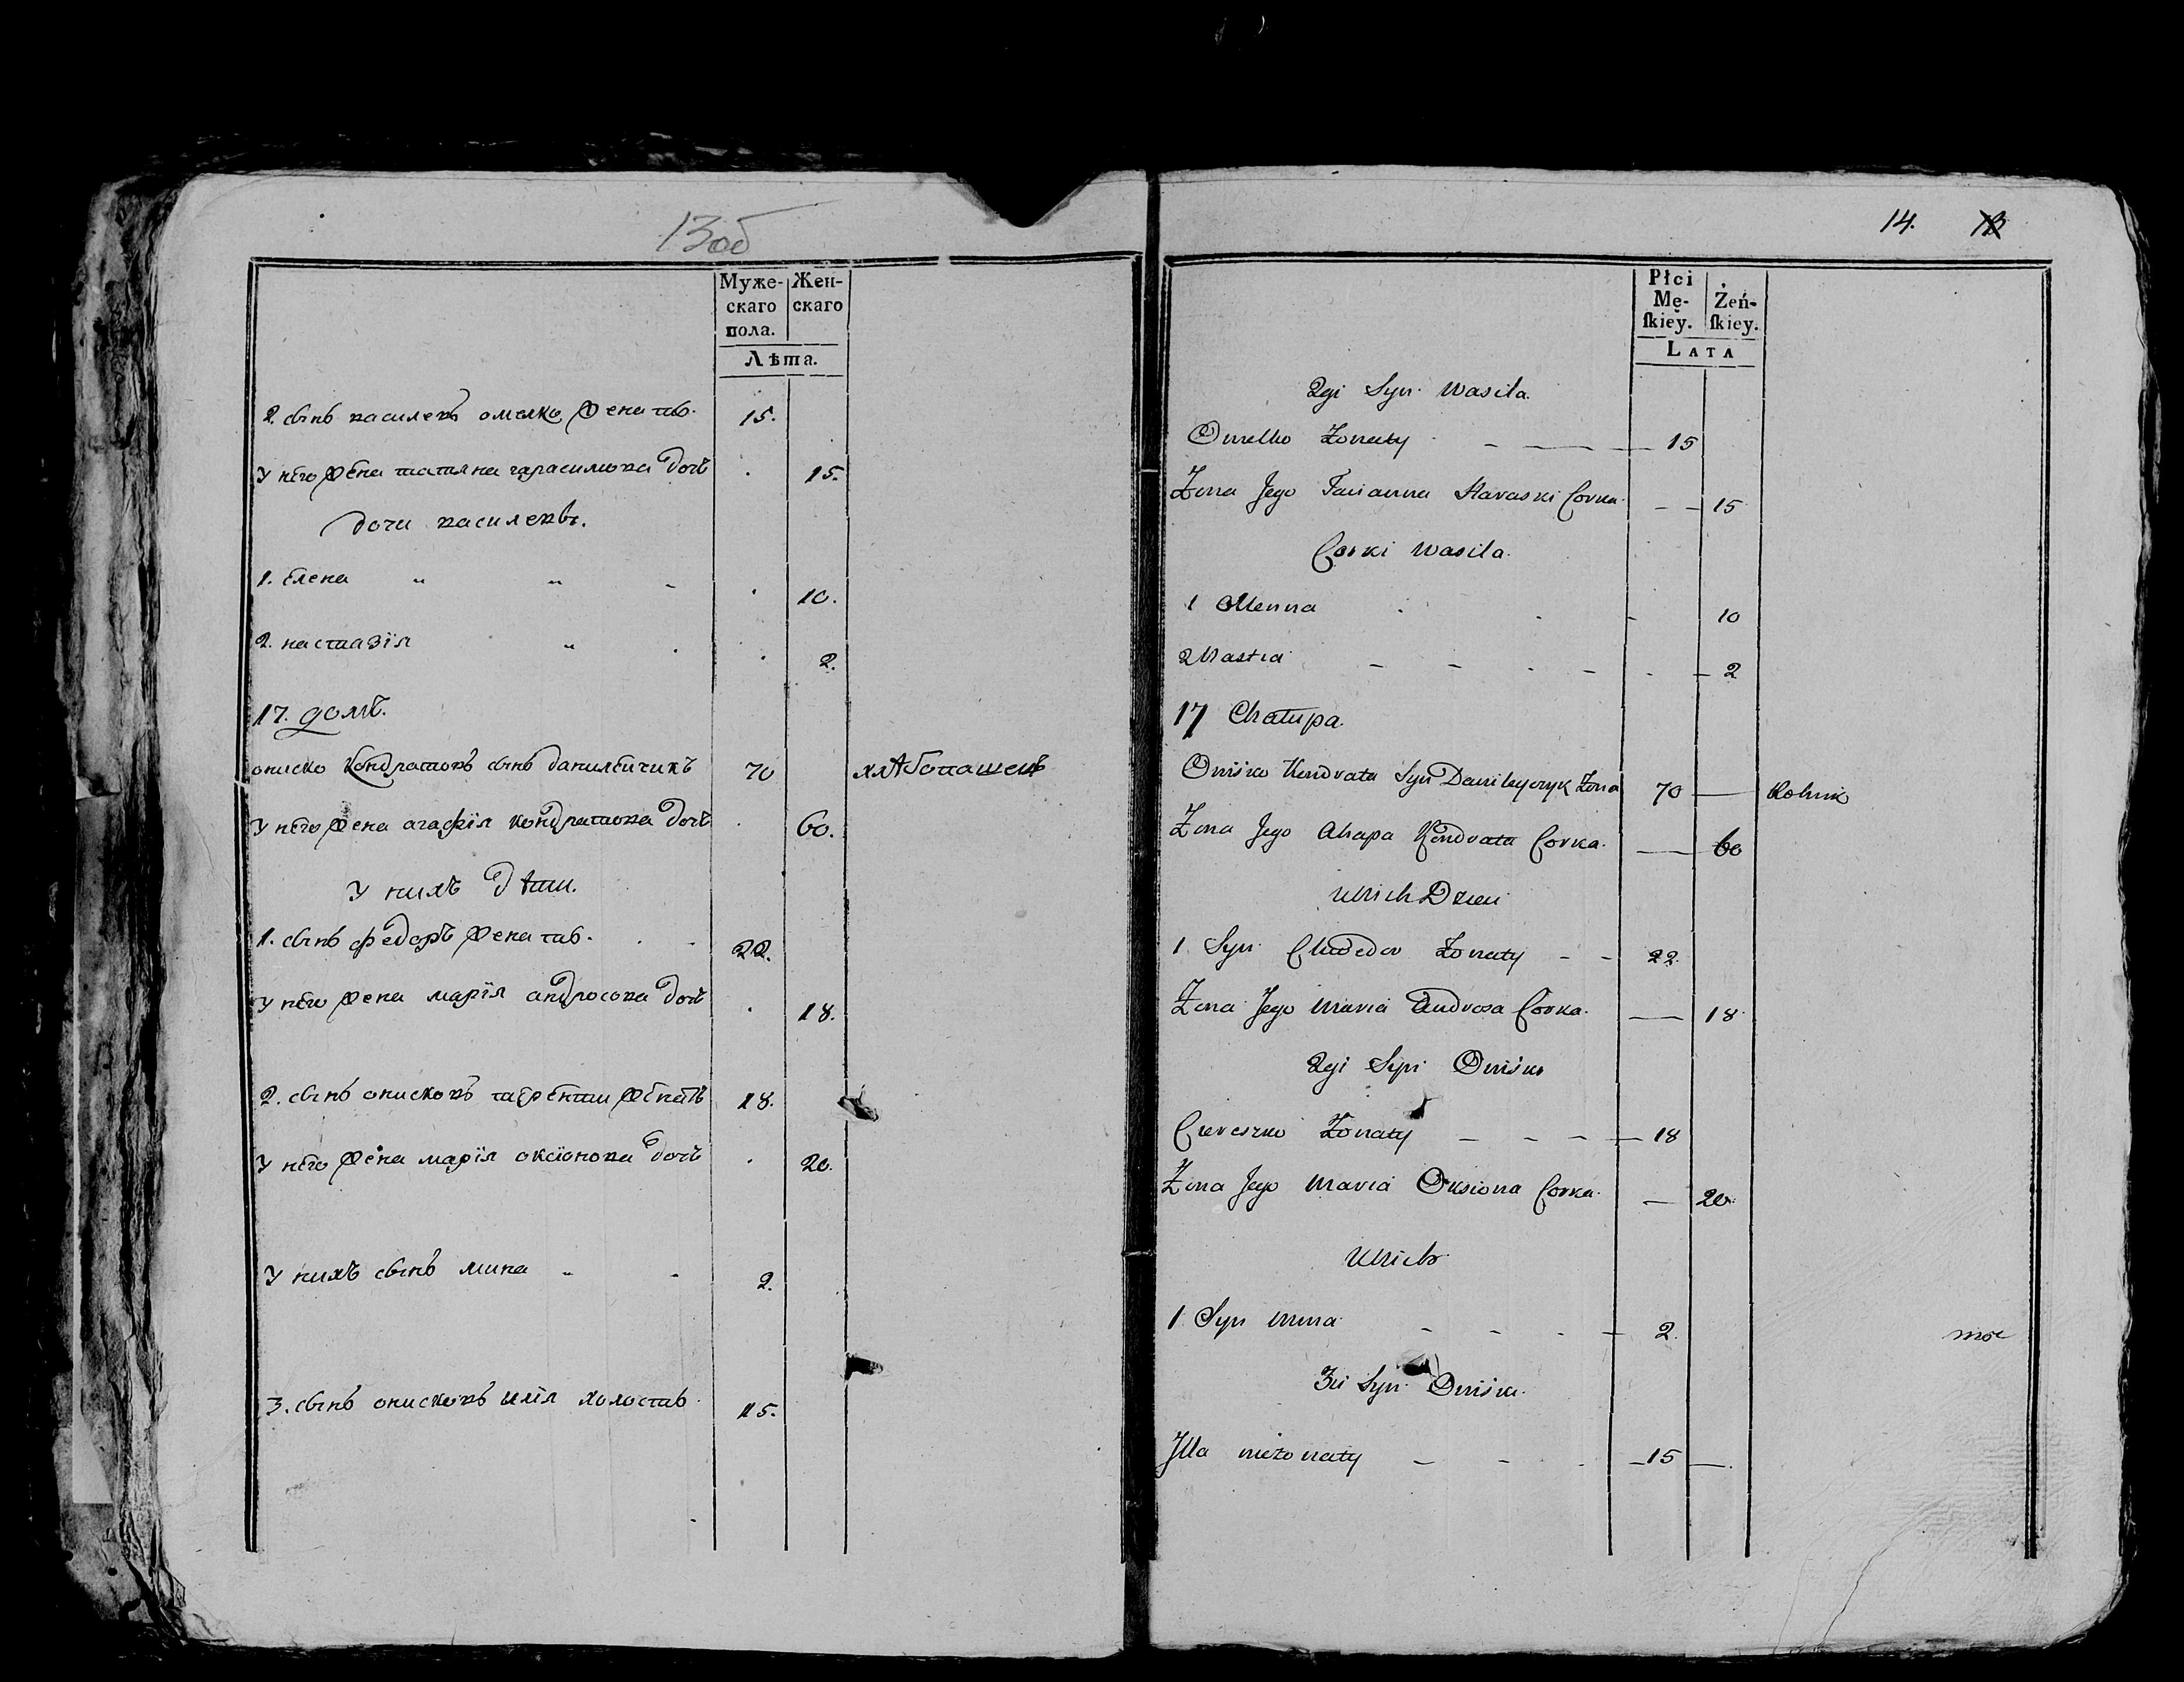 13об
Муже- Жен-
скаго скаго
пола.
Лѣта.
2. сынъ василевъ омелко женатъ. 15.
у него жена татяна гарасимова дочь 15.
дочи василевы.
1. елена 10.
2. настазія 2.
17. домъ.
ониско кондратовъ сынъ данилейчикъ 70 хлѣбопашецъ
у него жена агафія кондратова дочь 60.
у нихъ дѣти.
1. сынъ федоръ женатъ. 22.
у него жена марія андросова дочь 18.
2. сынъ онисковъ терентии женатъ 18.
у него жена марія оксіонова дочь 20.
у нихъ сынъ мина 2.
3. сынъ онисковъ илія холостъ. 15.
14. 13
Płci
Mę- Żeń-
ſkiey. ſkiey.
LATA
2gi Syn Wasila.
Omelko Żonaty 15
Żona Jego Tacianna Haraski Corka 15
Corki Wasila.
1 Olenna 10
2 Nastia 2
17 Chałupa.
Oniśko Kondrata Syn Danileyczyk Żona 70 Rolnik
Żona Jego Ahapa Kondrata Corka. 60
U Nich Dzieci
1 Syn Chwedor Żonaty 22.
Żona Jego Maria Androsa Corka. 18
2gi Syn Oniśka
Ciereszko Żonaty 18
Żona Jego Maria Oksiona Corka. 20
U Nich
1 Syn Mina 2.
3ci Syn Oniśka.
Jlla nieżonaty 15